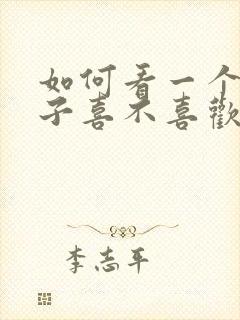 如何看一个
子喜不喜歡
李志平